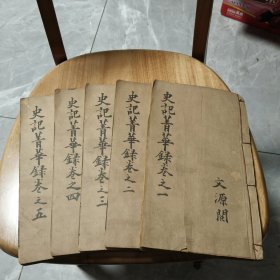 史記菁華録卷之一
文源閣
史記菁華録卷之二
史記菁華録卷之三
史記菁華録卷之四
史記菁華録卷之五